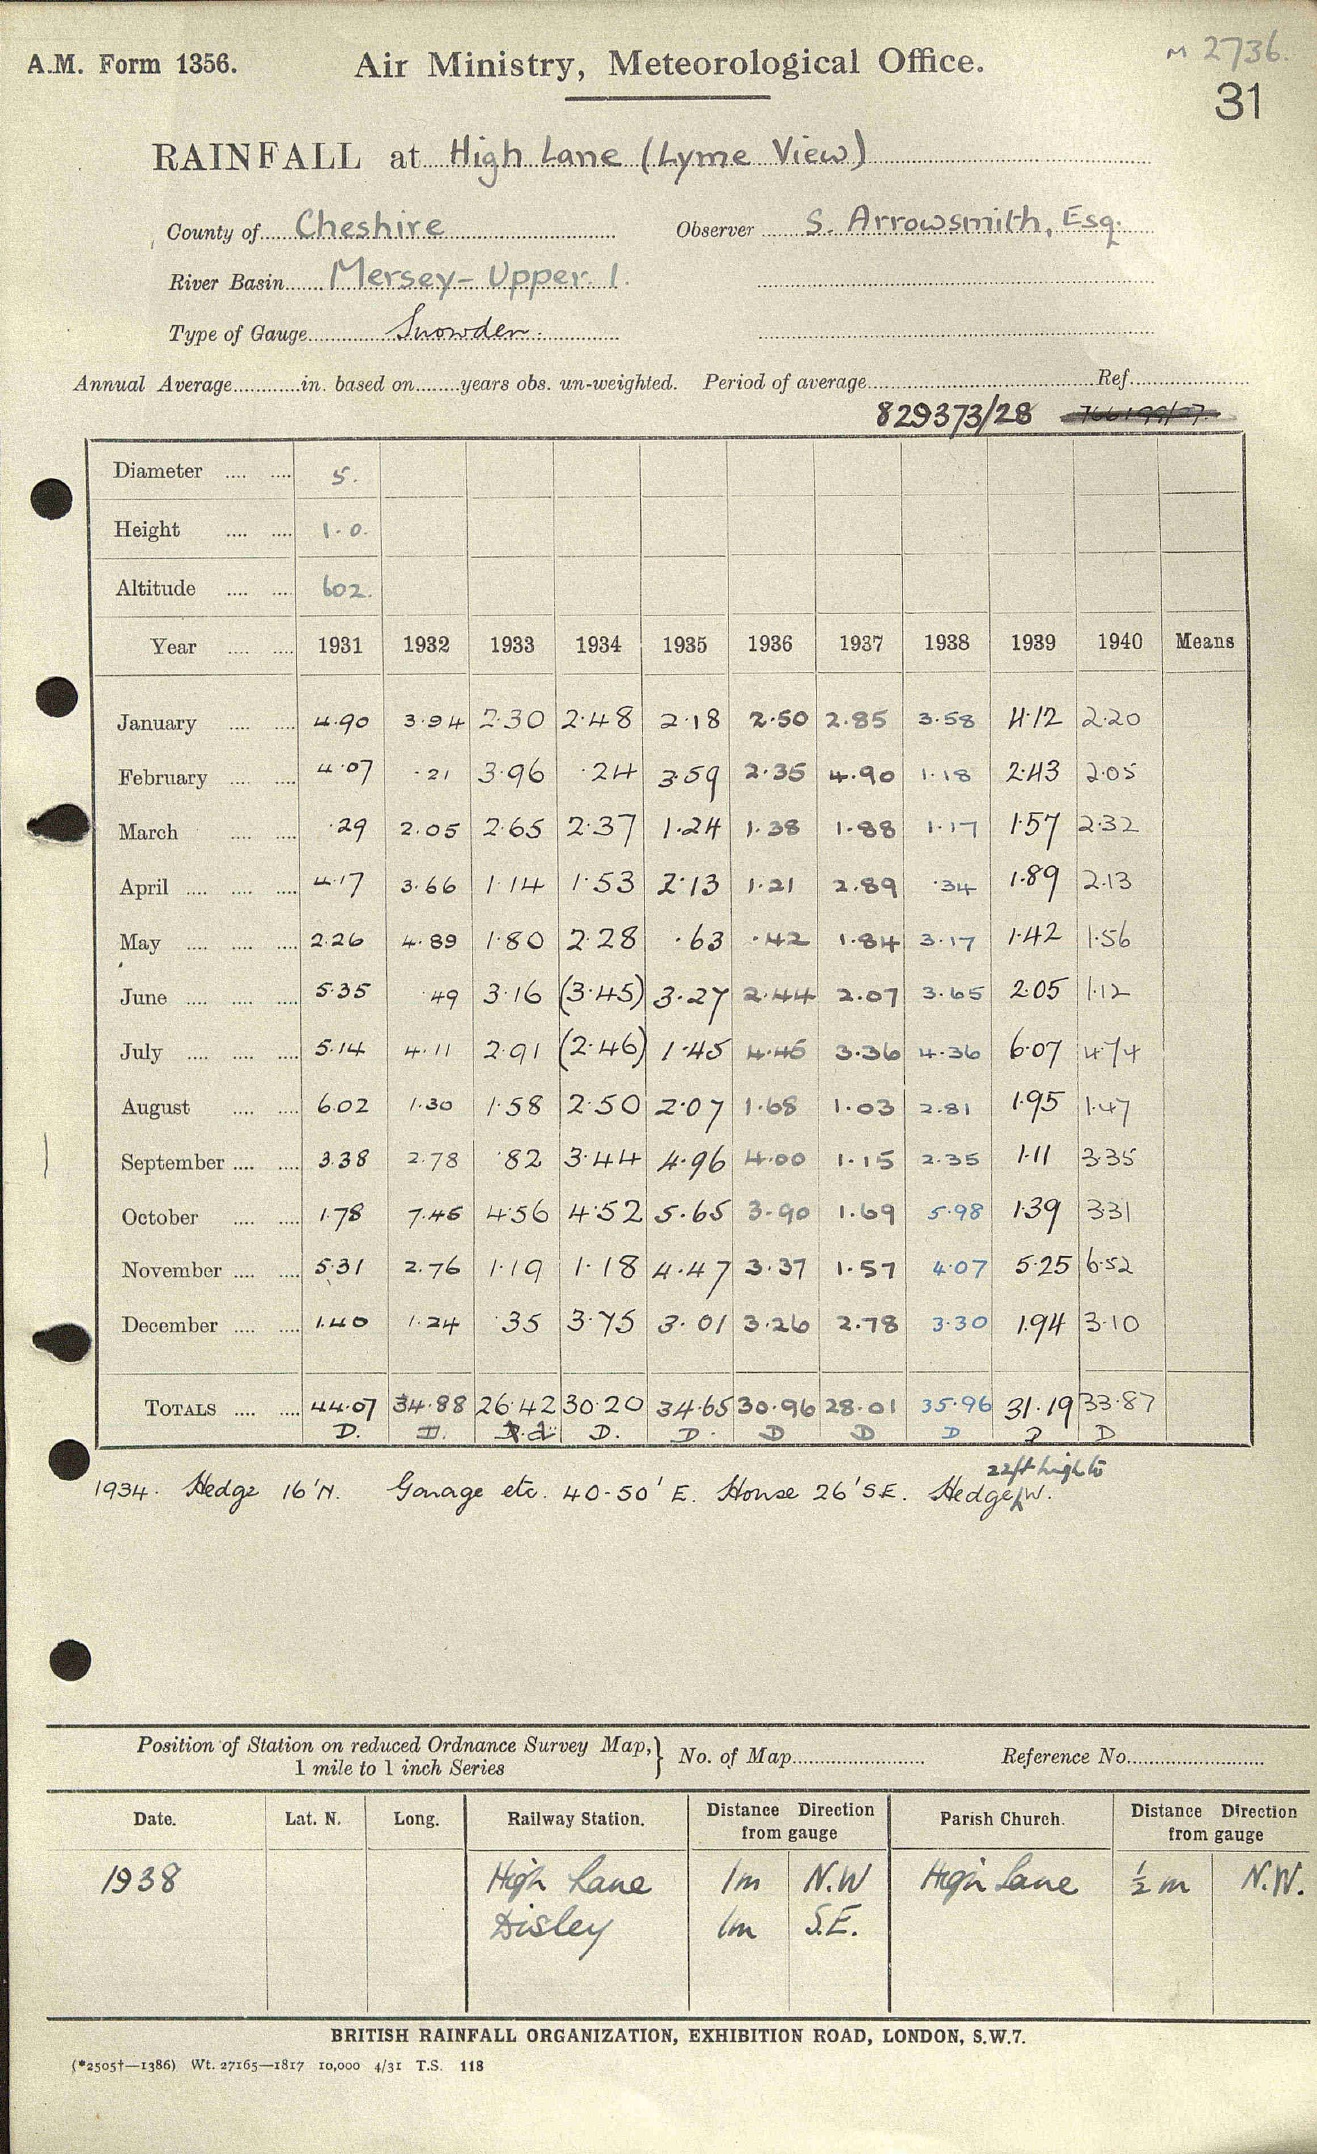 A.M. Form 1356. Air Ministry, Meteorological Office. M 2736.
31
RAINFALL at High Lane (Lyme View)
County of Cheshire Observer S. Arrowsmith, Esq.
River Basin Mersey - Upper. 1.
Type of Gauge Snowdon.
Annual Average in. based on years obs. un-weighted. Period of average Ref.
829373/28
Diameter 5.
Height 1.0.
Altitude 602.
Year 1931 1932 1933 1934 1935 1936 1937 1938 1939 1940 Means
January 4.90 3.94 2.30 2.48 2.18 2.50 2.85 3.58 4.12 2.20
February 4.07 .21 3.96 .24 3.59 2.35 4.90 1.18 2.43 2.05
March .29 2.05 2.65 2.37 1.24 1.38 1.88 1.17 1.57 2.32
April 4.17 3.66 1.14 1.53 2.13 1.21 2.89 .34 1.89 2.13
May 2.26 4.89 1.80 2.28 .63 .42 1.84 3.17 1.42 1.56
June 5.35 .49 3.16 (3.45) 3.27 2.44 2.07 3.65 2.05 1.12
July 5.14 4.11 2.91 (2.46) 1.45 4.45 3.36 4.36 6.07 4.74
August 6.02 1.30 1.58 2.50 2.07 1.68 1.03 2.81 1.95 1.47
September 3.38 2.78 .82 3.44 4.96 4.00 1.15 2.35 1.11 3.35
October 1.78 7.45 4.56 4.52 5.65 3.90 1.69 5.98 1.39 3.31
November 5.31 2.76 1.19 1.18 4.47 3.37 1.57 4.07 5.25 6.52
December 1.40 1.24 .35 3.75 3.01 3.26 2.78 3.30 1.94 3.10
TOTALS 44.07 34.88 26.42 30.20 34.65 30.96 28.01 35.96 31.19 33.87
D. D. d. D. D. D D D D D
22ft high to
1934. Hedge 16'N. Garage etc. 40-50' E. House 26' SE. Hedge W.
Position of Station on reduced Ordnance Survey Map, } No. of Map Reference No.
1 mile to 1 inch Series
Date. Lat. N. Long. Railway Station. Distance Direction from gauge Parish Church. Distance Direction from gauge
1938 High Lane 1m N.W High Lane ½ m N.W.
Disley 1m S.E.
BRITISH RAINFALL ORGANIZATION, EXHIBITION ROAD, LONDON, S.W.7.
(*2505†—1386) Wt. 27165—1817 10,000 4/31 T.S. 118